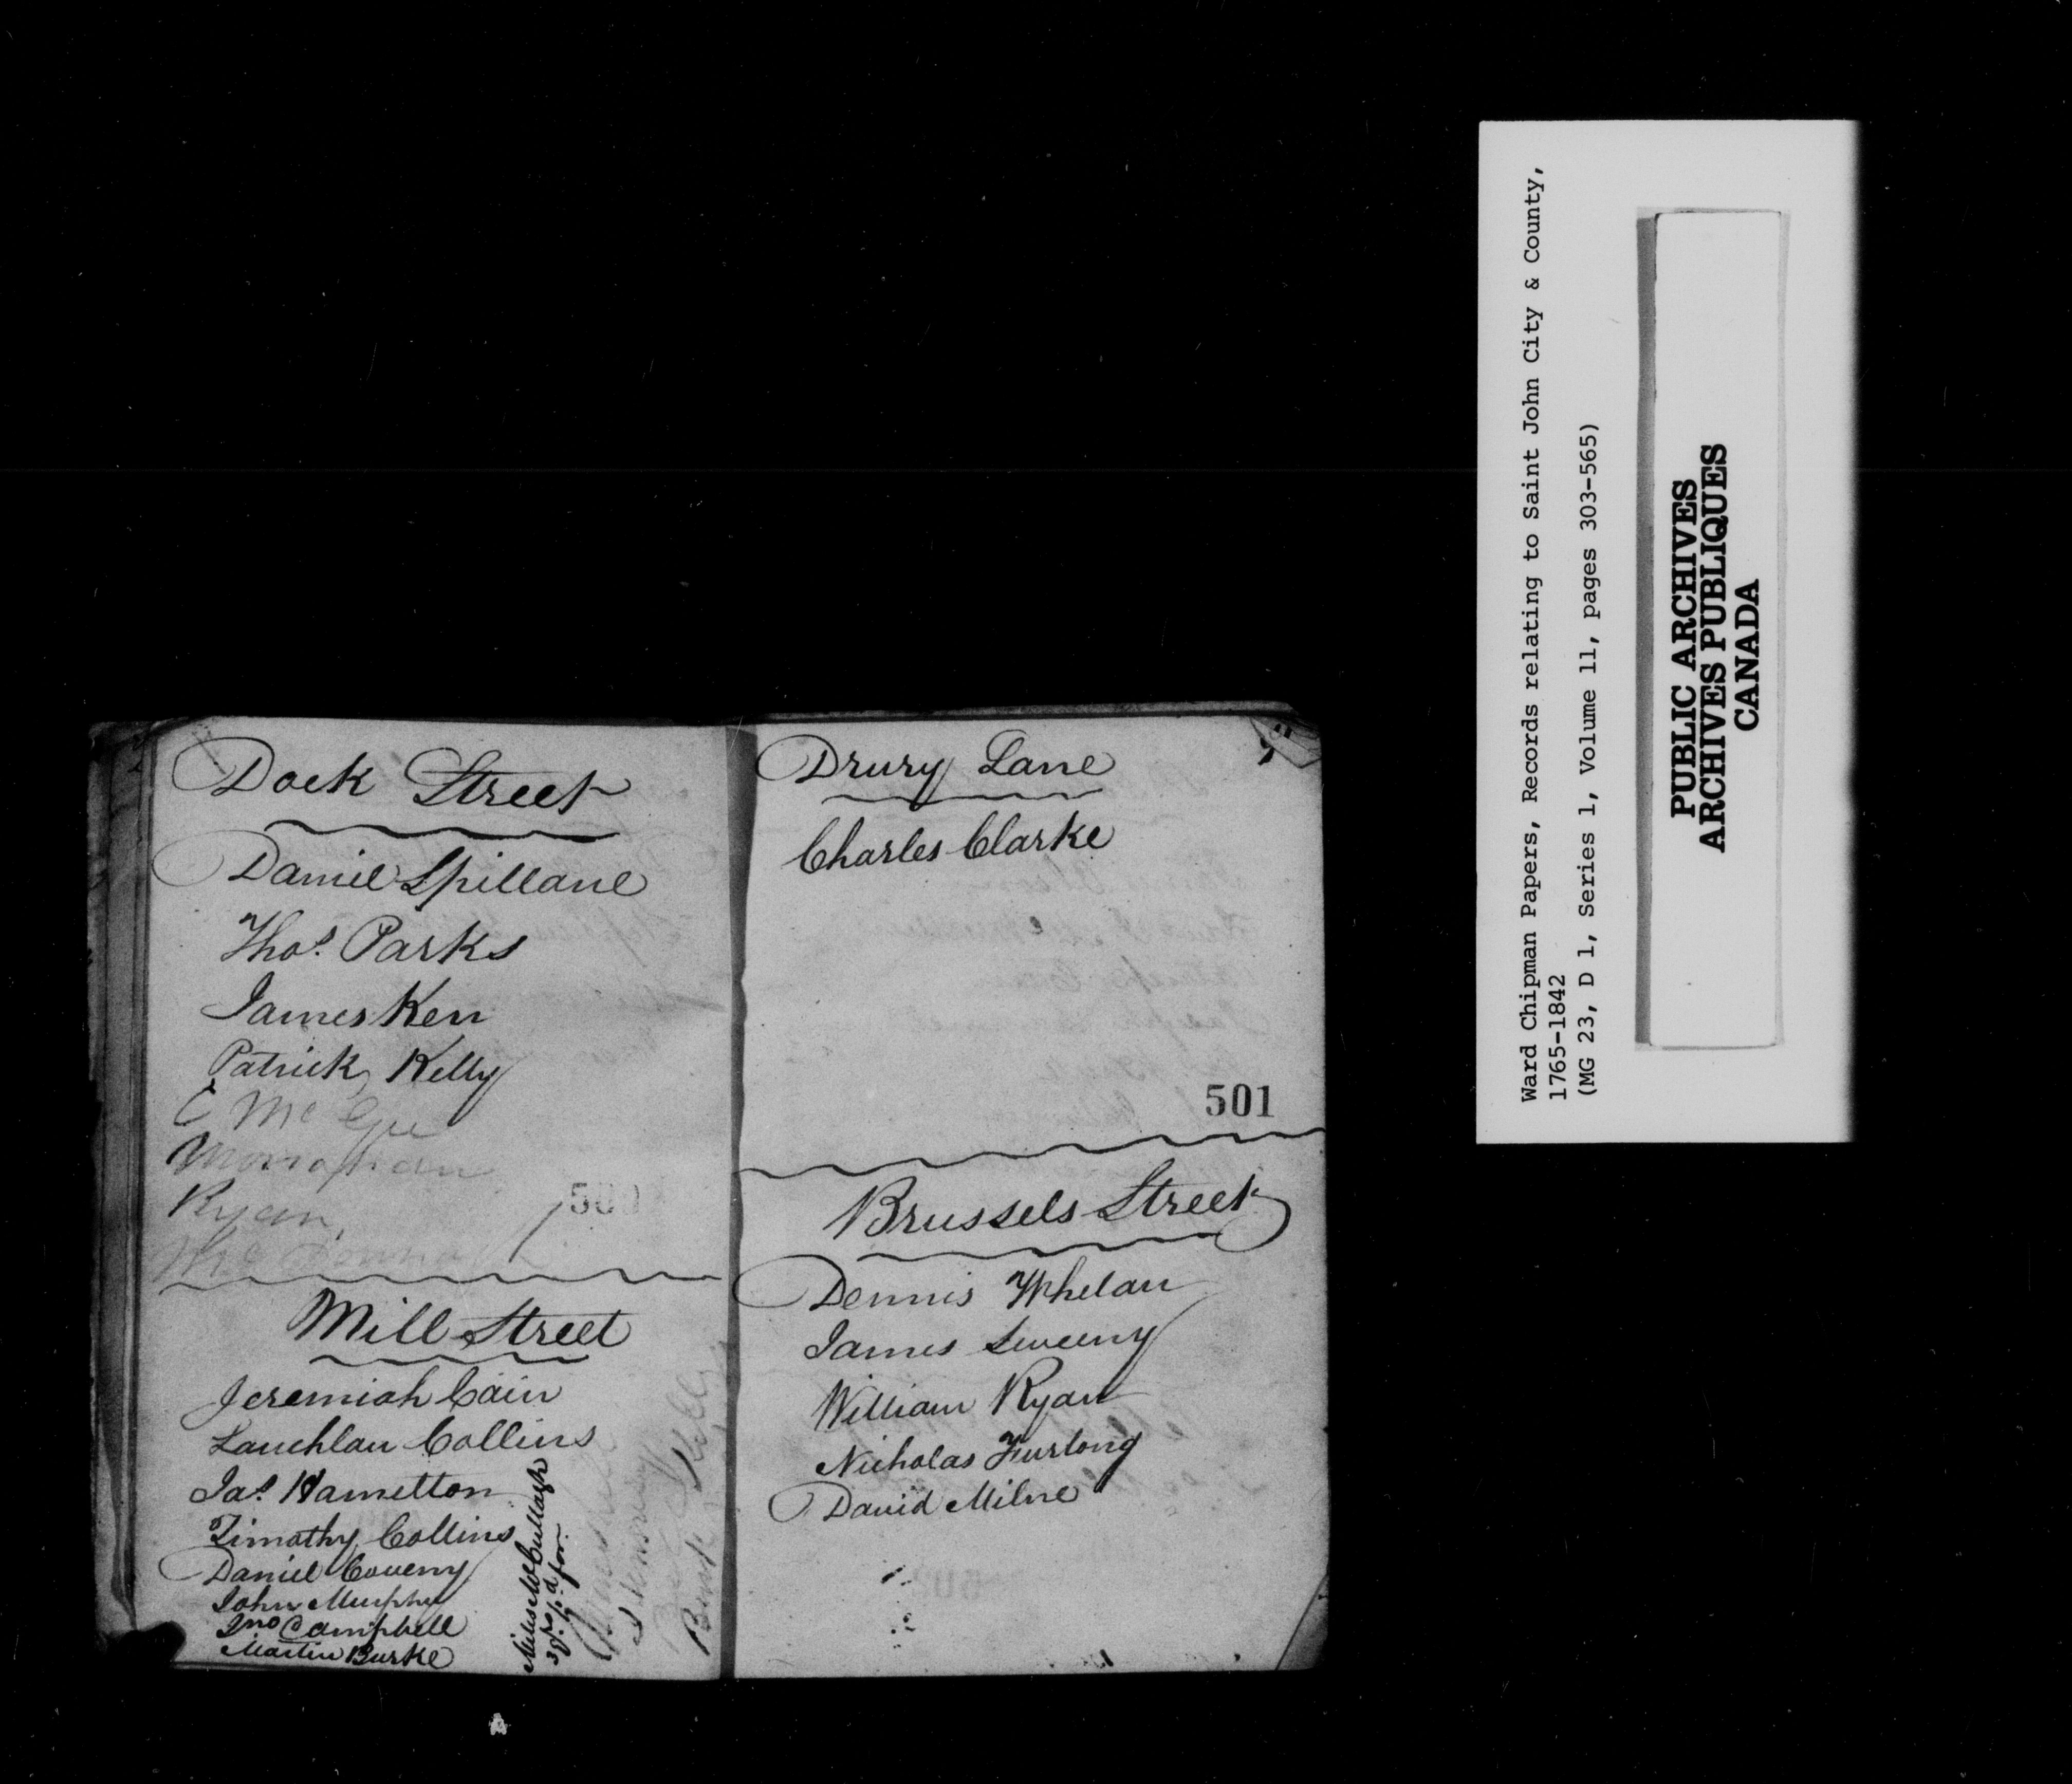 Dock Street
Daniel Spillane
Thos. Parks
James Kerr
Patrick Kelly
C McGee
Monaghan
Ryan
500
Mill Street
Jeremiah Cain
Lauchlan Collins
Jas. Hamelton
Timothy Collins
Daniel Coveny
John Murphy
Jno Campbell
Martin Burke
Miles McCullagh
Kelly
Drury Lane
Charles Clarke
501
Brussels Street
Dennis Whelan
James Sweeny
William Ryan
Nicholas Furlong
David Milne
Ward Chipman Papers, Records relating to Saint John City & County,
1765-1842
(MG 23, D 1, Series 1, Volume 11, pages 303-565)
PUBLIC ARCHIVES
ARCHIVES PUBLIQUES
CANADA